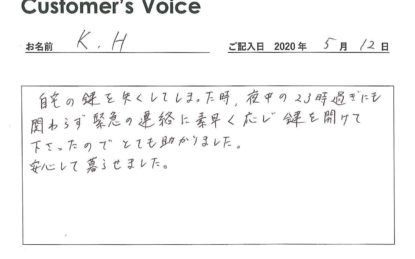 Customer's Voice
お名前 K.H ご記入日 2020年 5月 12日
自宅の鍵を失くしてしまった時、夜中の23時過ぎにも
関わらず緊急の連絡に素早く応じ鍵を開けて
下さったのでとても助かりました。
安心して暮らせました。